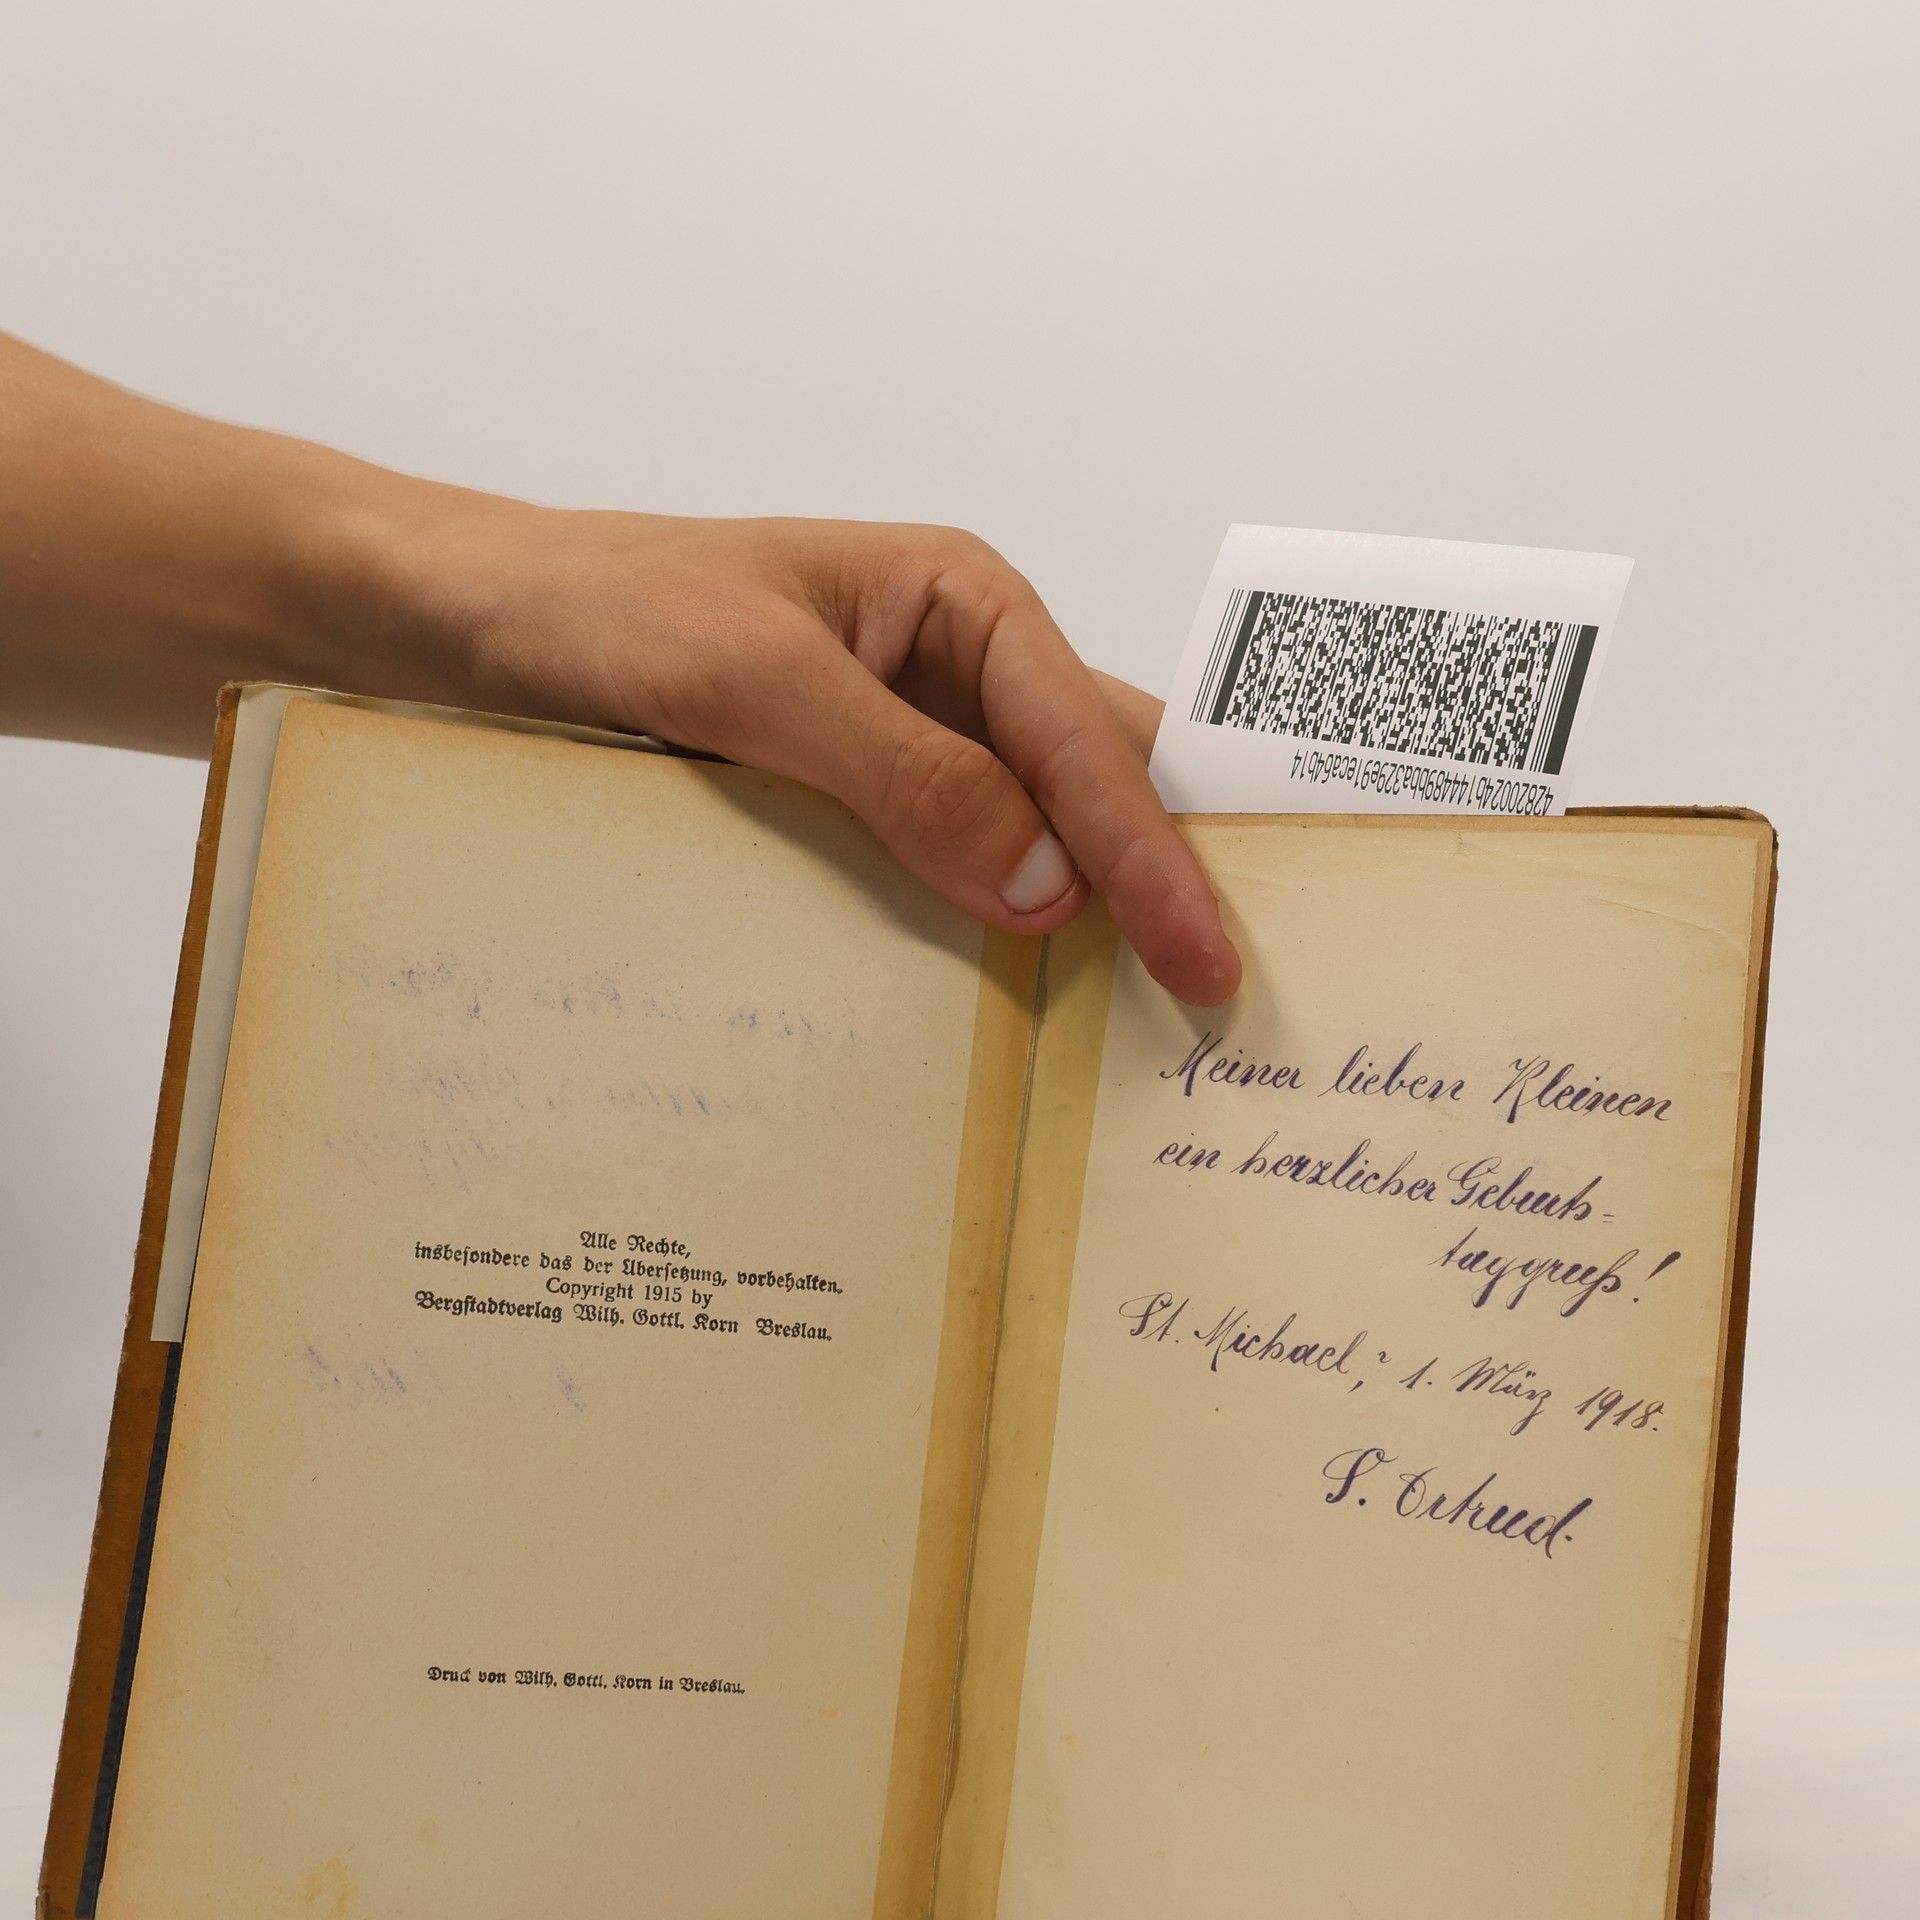 42820024b144489bba329e91eca64b14
Alle Rechte,
insbesondere das der Übersetzung, vorbehalten.
Copyright 1915 by
Bergstadtverlag Wilh. Gottl. Korn Breslau.
Druck von Wilh. Gottl. Korn in Breslau.
Meiner lieben Kleinen
ein herzlicher Geburts=
taggruß!
St. Michael, 1. März 1918.
S. Ortrud.